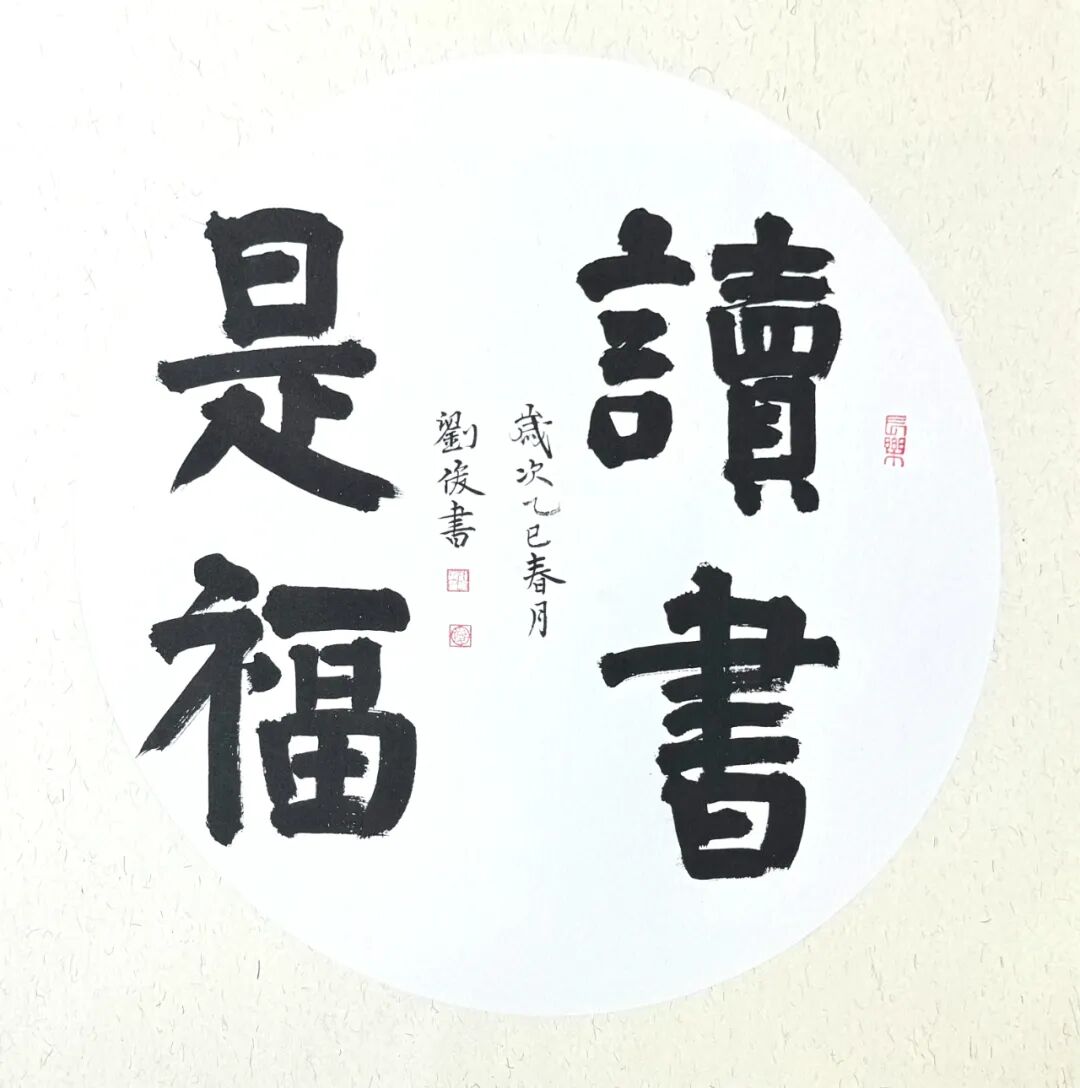 讀書
是福
歲次乙巳春月
劉俊書
長樂